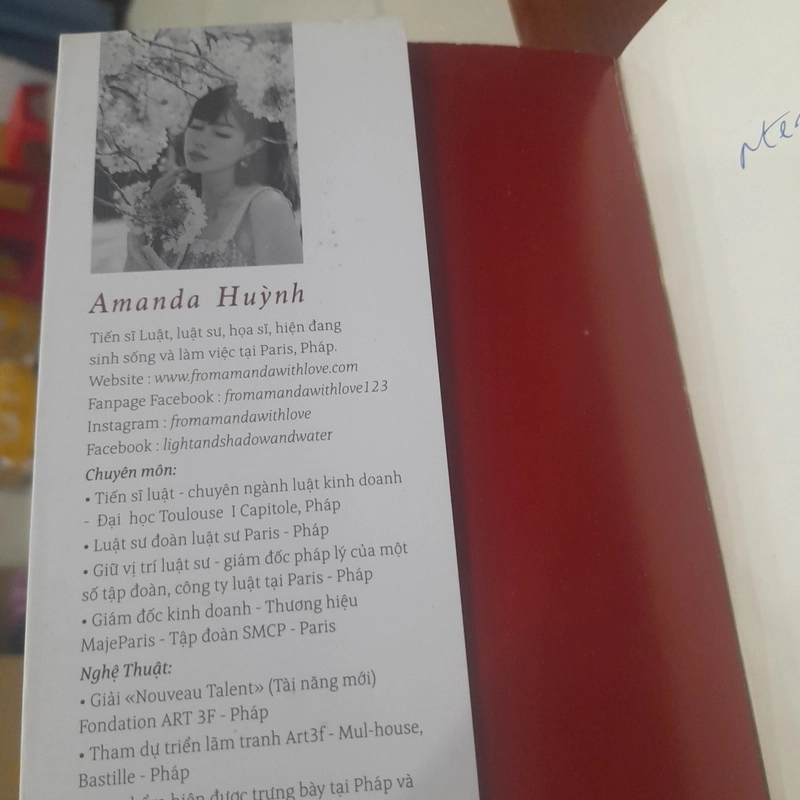 Amanda Huỳnh
Tiến sĩ Luật, luật sư, họa sĩ, hiện đang
sinh sống và làm việc tại Paris, Pháp.
Website : www.fromamandawithlove.com
Fanpage Facebook : fromamandawithlove123
Instagram : fromamandawithlove
Facebook : lightandshadowandwater
Chuyên môn:
• Tiến sĩ luật - chuyên ngành luật kinh doanh
- Đại học Toulouse I Capitole, Pháp
• Luật sư đoàn luật sư Paris - Pháp
• Giữ vị trí luật sư - giám đốc pháp lý của một
số tập đoàn, công ty luật tại Paris - Pháp
• Giám đốc kinh doanh - Thương hiệu
MajeParis - Tập đoàn SMCP - Paris
Nghệ Thuật:
• Giải «Nouveau Talent» (Tài năng mới)
Fondation ART 3F - Pháp
• Tham dự triển lãm tranh Art3f - Mul-house,
Bastille - Pháp
hiện được trưng bày tại Pháp và